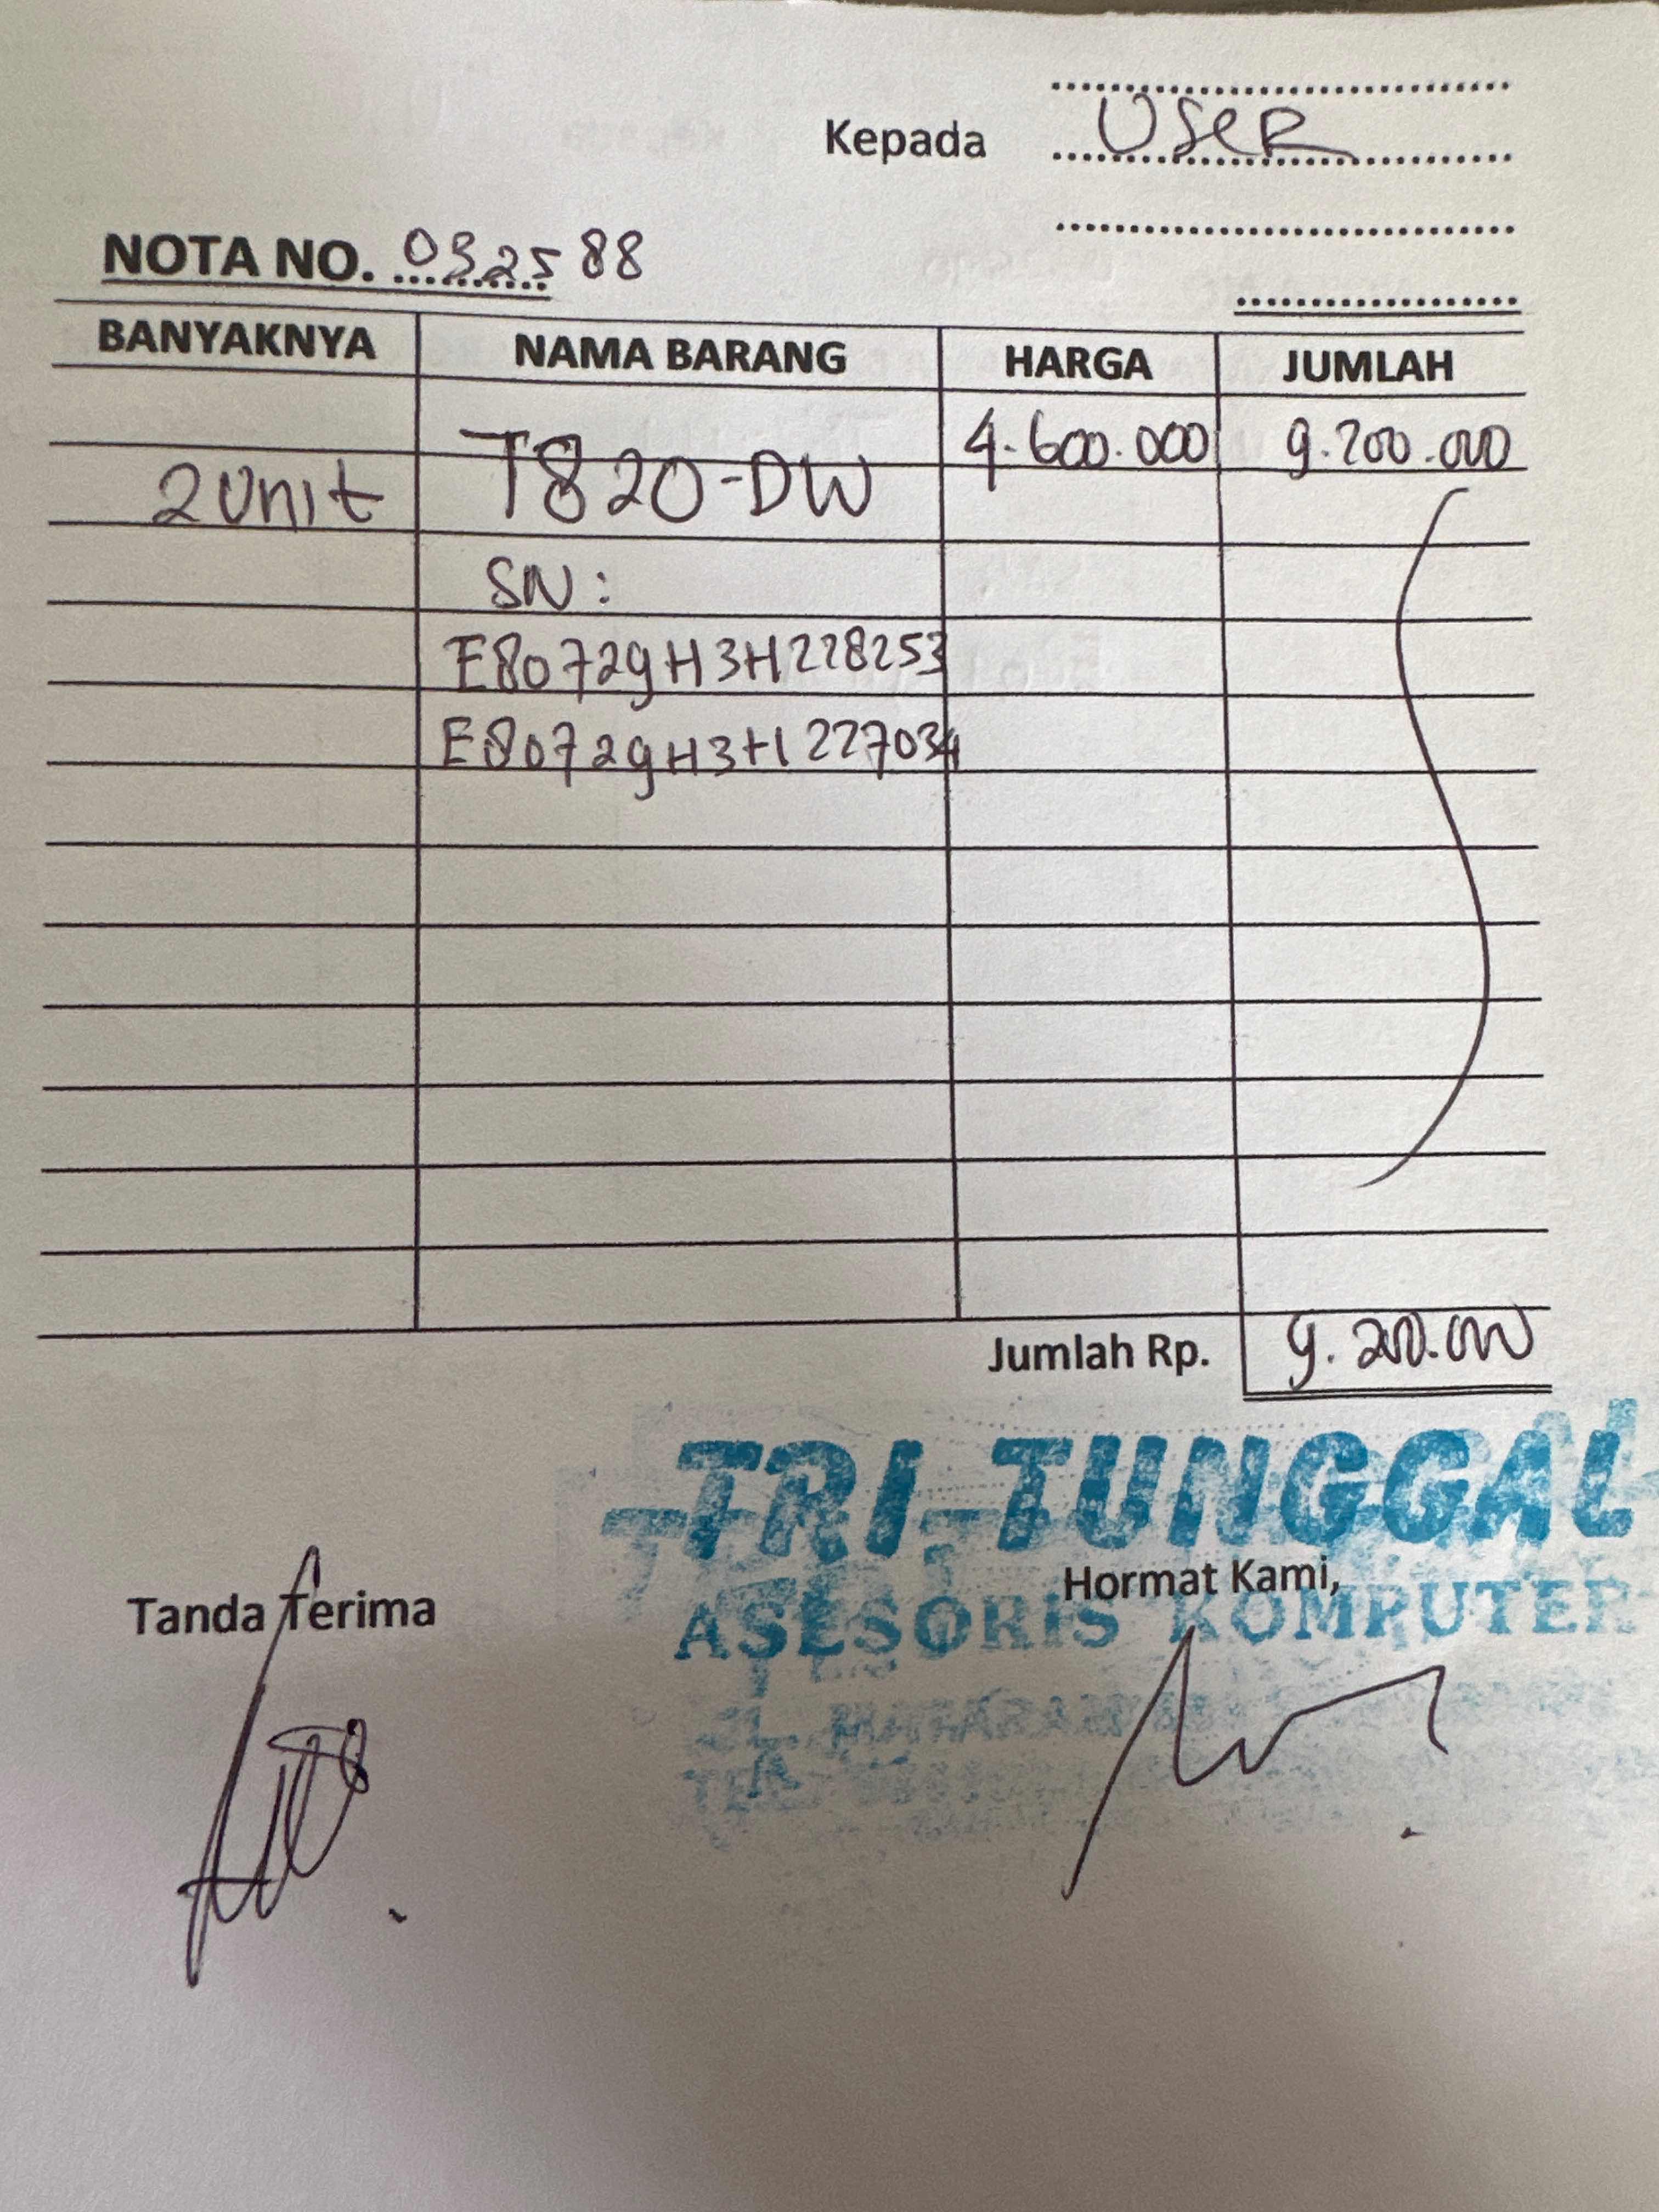 Kepada USER
NOTA NO. 032588
BANYAKNYA NAMA BARANG HARGA JUMLAH
2 Unit T820-DW 4.600.000 9.200.000
SN :
E80729H3H228253
E80729H3H227034
Jumlah Rp. 9.200.000
TRI-TUNGGAL
Tanda Terima Hormat Kami,
ASESORIS KOMPUTER